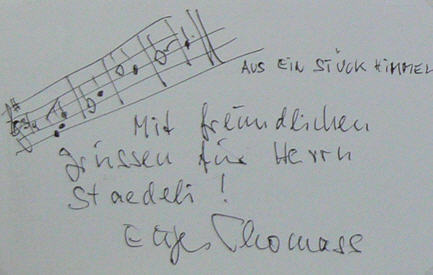 AUS EIN STÜCK HIMMEL
Mit freundlichen
Grüssen für Herrn
Staedeli !
Thomass